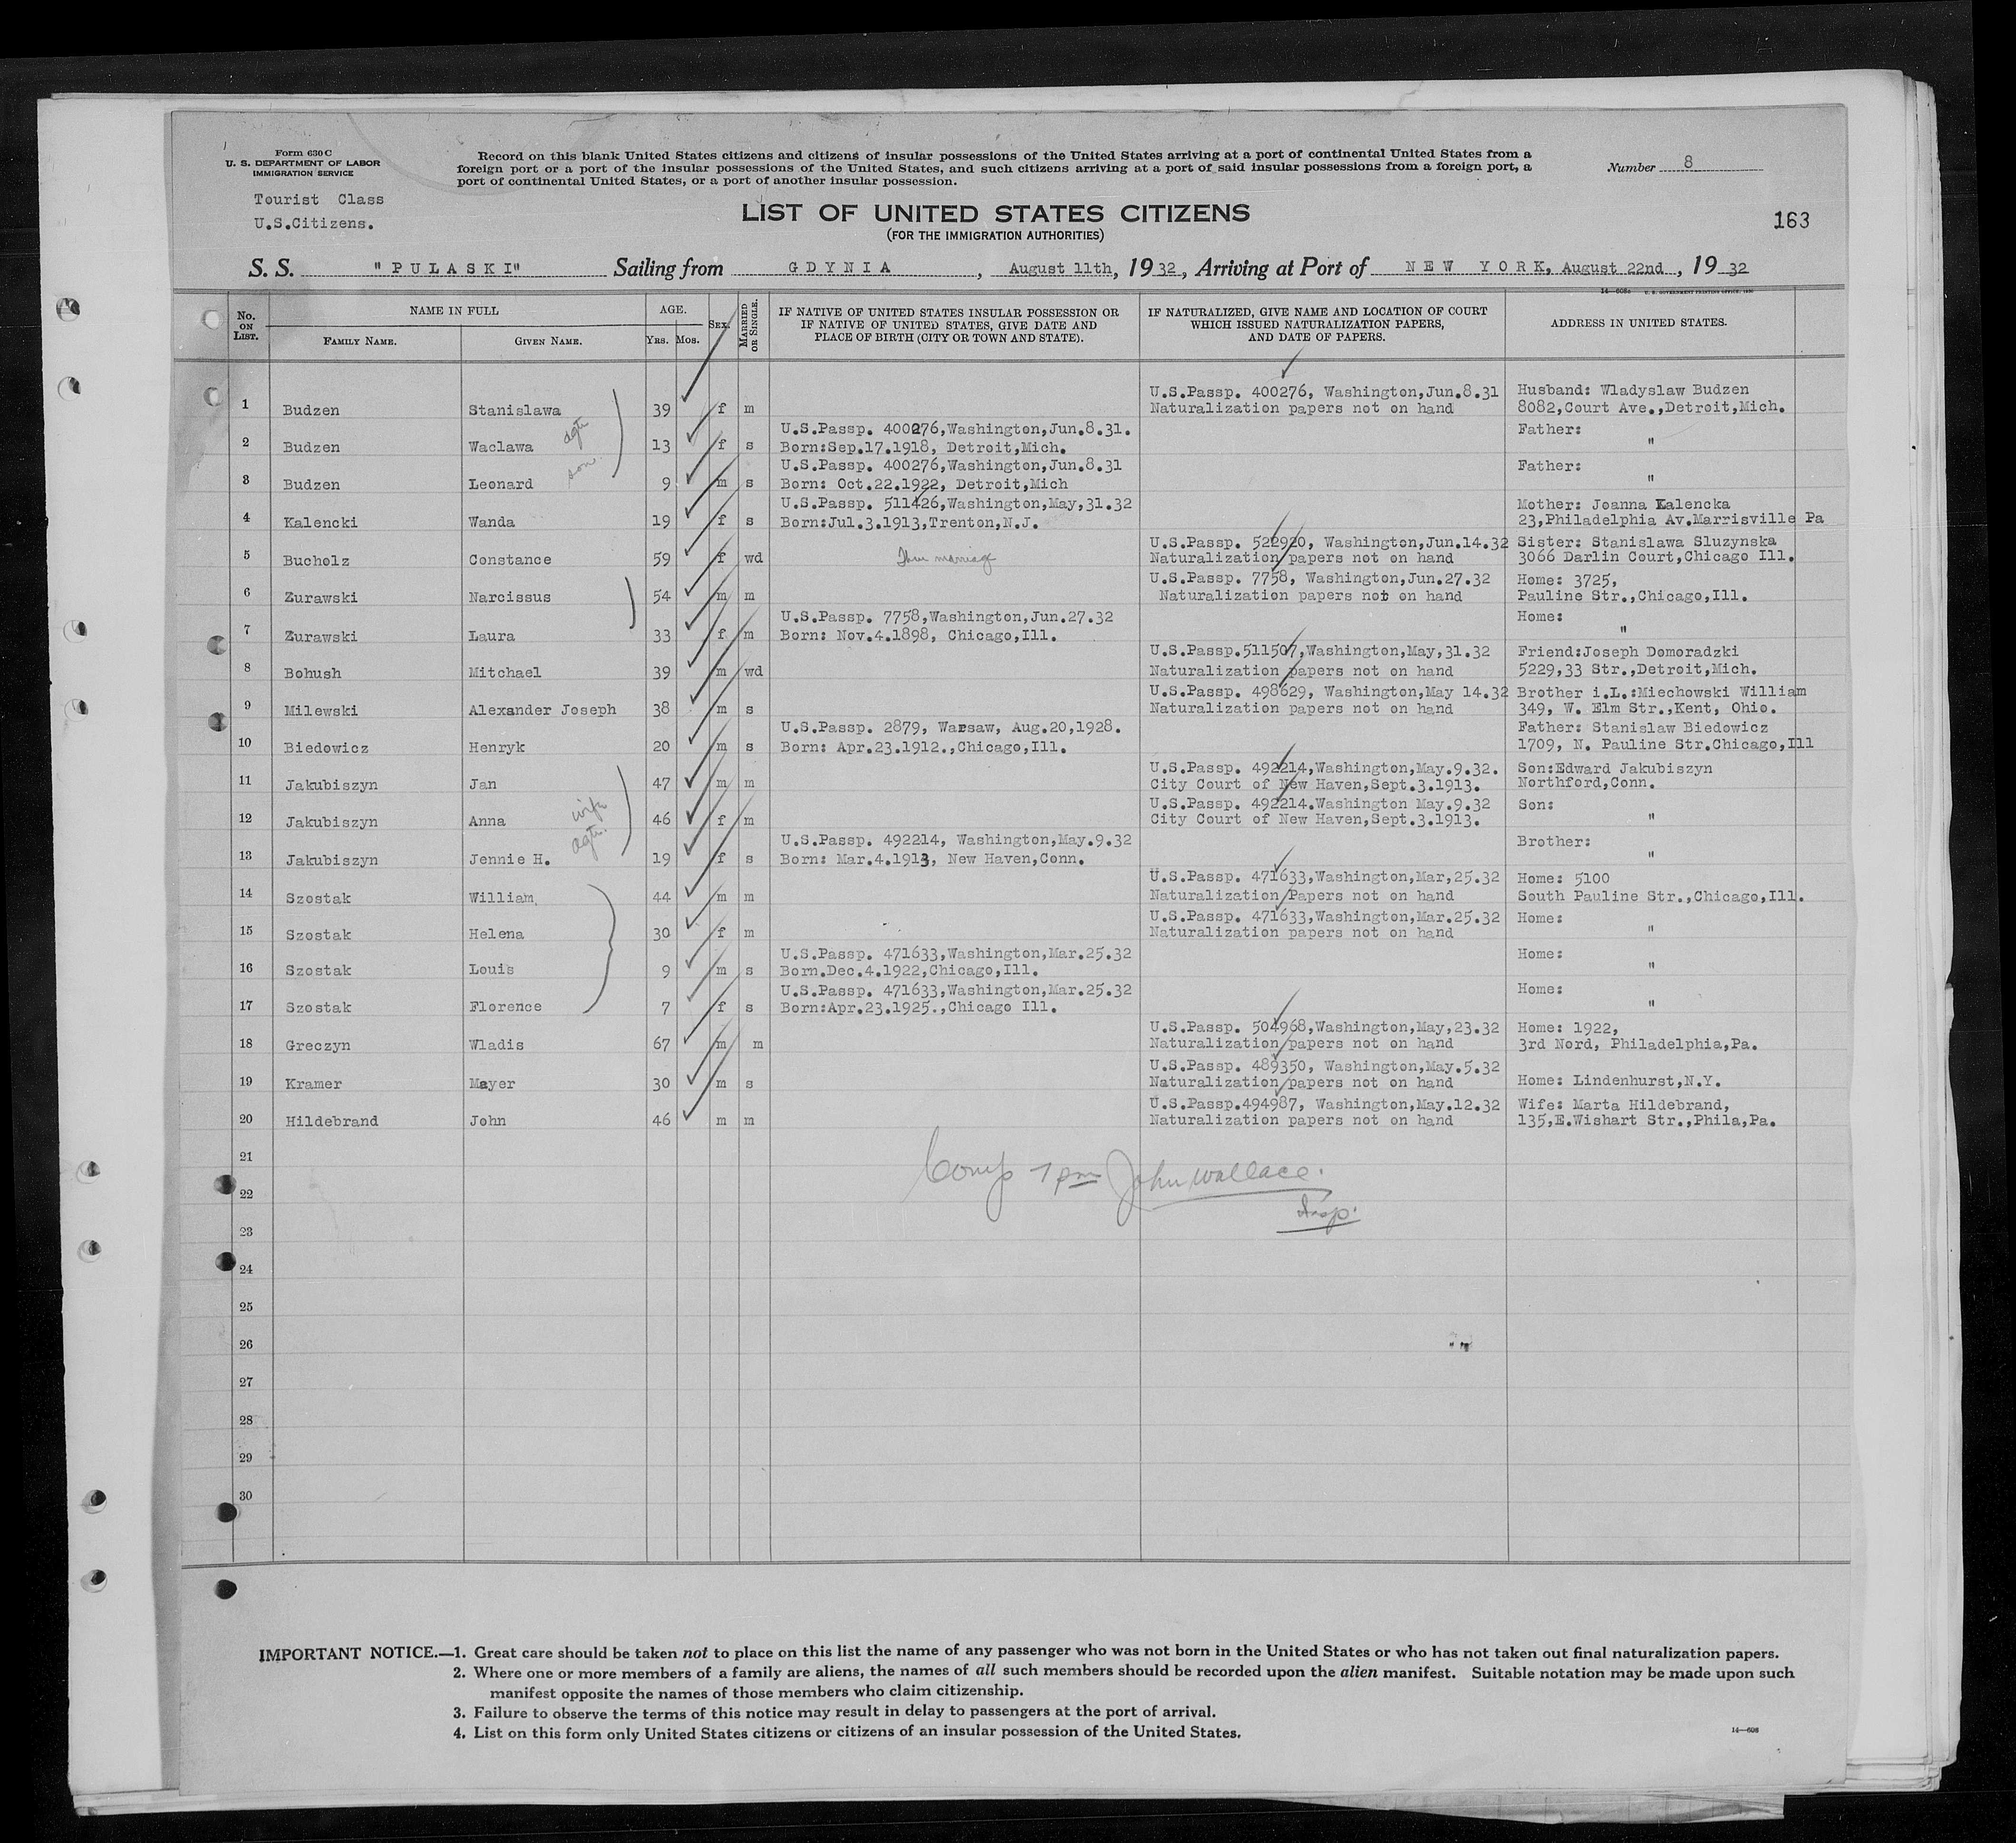 Form 630 C
U. S. DEPARTMENT OF LABOR
IMMIGRATION SERVICE
Tourist Class
U.S.Citizens.
Record on this blank United States citizens and citizens of insular possessions of the United States arriving at a port of continental United States from a
foreign port or a port of the insular possessions of the United States, and such citizens arriving at a port of said insular possessions from a foreign port, a
port of continental United States, or a port of another insular possession.
Number 8
LIST OF UNITED STATES CITIZENS
(FOR THE IMMIGRATION AUTHORITIES)
163
S. S. "PULASKI" Sailing from GDYNIA, August 11th, 1932, Arriving at Port of NEW YORK, August 22nd, 1932
14—608a U. S. GOVERNMENT PRINTING OFFICE: 1930
No. ON LIST.
NAME IN FULL
FAMILY NAME. GIVEN NAME.
AGE.
YRS. MOS.
SEX.
MARRIED OR SINGLE.
IF NATIVE OF UNITED STATES INSULAR POSSESSION OR
IF NATIVE OF UNITED STATES, GIVE DATE AND
PLACE OF BIRTH (CITY OR TOWN AND STATE).
IF NATURALIZED, GIVE NAME AND LOCATION OF COURT
WHICH ISSUED NATURALIZATION PAPERS,
AND DATE OF PAPERS.
ADDRESS IN UNITED STATES.
U.S.Passp. 400276, Washington,Jun.8.31 Husband: Wladyslaw Budzen
1 Budzen Stanislawa 39 f m Naturalization papers not on hand 8082,Court Ave.,Detroit,Mich.
U.S.Passp. 400276,Washington,Jun.8.31. Father:
2 Budzen Waclawa dgtr 13 f s Born:Sep.17.1918, Detroit,Mich. "
U.S.Passp. 400276,Washington,Jun.8.31 Father:
3 Budzen Leonard son 9 m s Born: Oct.22.1922, Detroit,Mich "
U.S.Passp. 511426,Washington,May,31.32 Mother: Joanna Kalencka
4 Kalencki Wanda 19 f s Born:Jul.3.1913,Trenton,N.J. 23,Philadelphia Av.Marrisville Pa
U.S.Passp. 522920, Washington,Jun.14.32 Sister: Stanislawa Sluzynska
5 Bucholz Constance 59 f wd Thru marriage Naturalization papers not on hand 3066 Darlin Court,Chicago Ill.
U.S.Passp. 7758, Washington,Jun.27.32 Home: 3725,
6 Zurawski Narcissus 54 m m Naturalization papers not on hand Pauline Str.,Chicago,Ill.
U.S.Passp. 7758,Washington,Jun.27.32 Home:
7 Zurawski Laura 33 f m Born: Nov.4.1898, Chicago,Ill. "
U.S.Passp.511507,Washington,May,31.32 Friend:Joseph Domoradzki
8 Bohush Mitchael 39 m wd Naturalization papers not on hand 5229,33 Str.,Detroit,Mich.
U.S.Passp. 498629, Washington,May 14.32 Brother i.L.:Miechowski William
9 Milewski Alexander Joseph 38 m s Naturalization papers not on hand 349, W. Elm Str.,Kent, Ohio.
U.S.Passp. 2879, Warsaw, Aug.20,1928. Father: Stanislaw Biedowicz
10 Biedowicz Henryk 20 m s Born: Apr.23.1912.,Chicago,Ill. 1709, N. Pauline Str.Chicago,Ill
U.S.Passp. 492214,Washington,May.9.32. Son:Edward Jakubiszyn
11 Jakubiszyn Jan 47 m m City Court of New Haven,Sept.3.1913. Northford,Conn.
U.S.Passp. 492214.Washington May.9.32 Son:
12 Jakubiszyn Anna wife 46 f m City Court of New Haven,Sept.3.1913. "
U.S.Passp. 492214, Washington,May.9.32 Brother:
13 Jakubiszyn Jennie H. dgtr. 19 f s Born: Mar.4.1913, New Haven,Conn. "
U.S.Passp. 471633,Washington,Mar,25.32 Home: 5100
14 Szostak William 44 m m Naturalization Papers not on hand South Pauline Str.,Chicago,Ill.
U.S.Passp. 471633,Washington,Mar.25.32 Home:
15 Szostak Helena 30 f m Naturalization papers not on hand "
U.S.Passp. 471633,Washington,Mar.25.32 Home:
16 Szostak Louis 9 m s Born.Dec.4.1922,Chicago,Ill. "
U.S.Passp. 471633,Washington,Mar.25.32 Home:
17 Szostak Florence 7 f s Born:Apr.23.1925.,Chicago Ill. "
U.S.Passp. 504968,Washington,May,23.32 Home: 1922,
18 Greczyn Wladis 67 m m Naturalization papers not on hand 3rd Nord, Philadelphia,Pa.
U.S.Passp. 489350, Washington,May.5.32
19 Kramer Mayer 30 m s Naturalization papers not on hand Home: Lindenhurst,N.Y.
U.S.Passp.494987, Washington,May.12.32 Wife: Marta Hildebrand,
20 Hildebrand John 46 m m Naturalization papers not on hand 135,E.Wishart Str.,Phila,Pa.
21
Comp 7 pm John Wallace.
22
Insp.
23
24
25
26
27
28
29
30
IMPORTANT NOTICE.—1. Great care should be taken not to place on this list the name of any passenger who was not born in the United States or who has not taken out final naturalization papers.
2. Where one or more members of a family are aliens, the names of all such members should be recorded upon the alien manifest. Suitable notation may be made upon such
manifest opposite the names of those members who claim citizenship.
3. Failure to observe the terms of this notice may result in delay to passengers at the port of arrival.
4. List on this form only United States citizens or citizens of an insular possession of the United States.
14—608